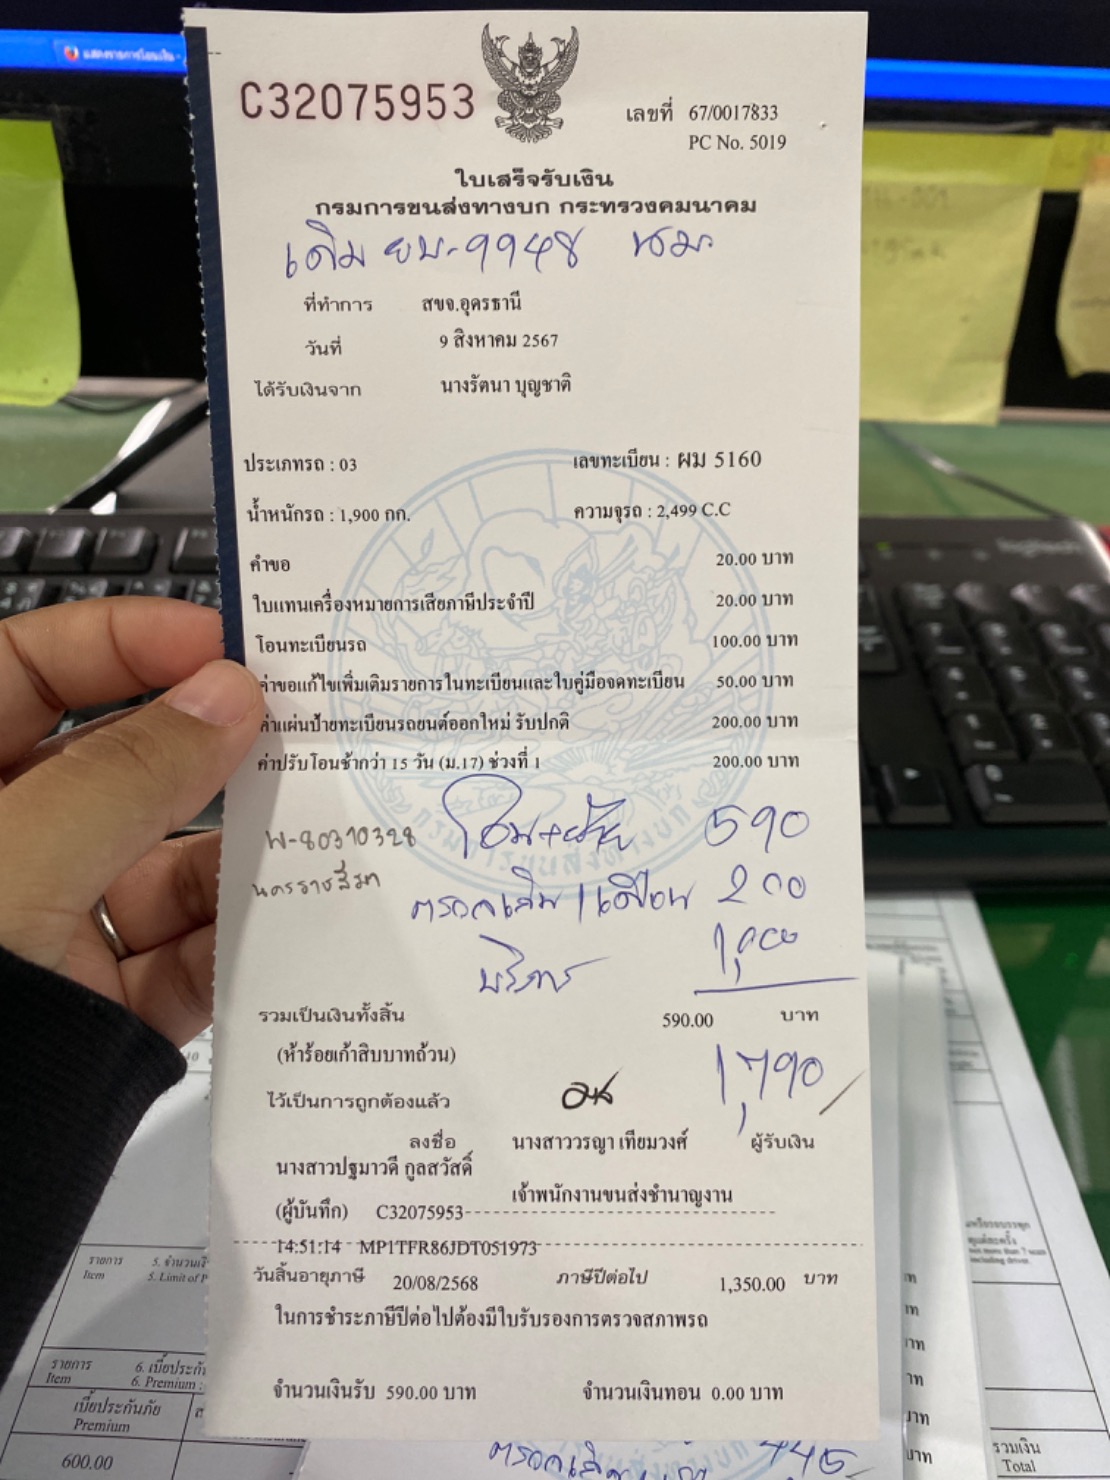 C32075953
เลขที่ 67/0017833
PC No. 5019
ใบเสร็จรับเงิน
กรมการขนส่งทางบก กระทรวงคมนาคม
เดิม ยบ-9948 นม.
ที่ทำการ สขจ.อุดรธานี
วันที่ 9 สิงหาคม 2567
ได้รับเงินจาก นางรัตนา บุญชาติ
ประเภทรถ : 03 เลขทะเบียน : ผม 5160
น้ำหนักรถ : 1,900 กก. ความจุรถ : 2,499 C.C
คำขอ 20.00 บาท
ใบแทนเครื่องหมายการเสียภาษีประจำปี 20.00 บาท
โอนทะเบียนรถ 100.00 บาท
ค่าขอแก้ไขเพิ่มเติมรายการในทะเบียนและใบคู่มือจดทะเบียน 50.00 บาท
ค่าแผ่นป้ายทะเบียนรถยนต์ออกใหม่ รับปกติ 200.00 บาท
ค่าปรับโอนช้ากว่า 15 วัน (ม.17) ช่วงที่ 1 200.00 บาท
โอน+ย้าย 590
W-80310328
นครราชสีมา
200
บริการ 1,000
รวมเป็นเงินทั้งสิ้น 590.00 บาท
(ห้าร้อยเก้าสิบบาทถ้วน)
1,790
ไว้เป็นการถูกต้องแล้ว
ลงชื่อ นางสาววรญา เทียมวงศ์ ผู้รับเงิน
นางสาวปฐมาวดี กูลสวัสดิ์
เจ้าพนักงานขนส่งชำนาญงาน
(ผู้บันทึก) C32075953
14:51:14 MP1TFR86JDT051973
วันสิ้นอายุภาษี 20/08/2568 ภาษีปีต่อไป 1,350.00 บาท
ในการชำระภาษีปีต่อไปต้องมีใบรับรองการตรวจสภาพรถ
จำนวนเงินรับ 590.00 บาท จำนวนเงินทอน 0.00 บาท
รายการ
Item
รายการ
Item
เบี้ยประกันภัย
Premium
600.00
รวมเงิน
Total
logitech